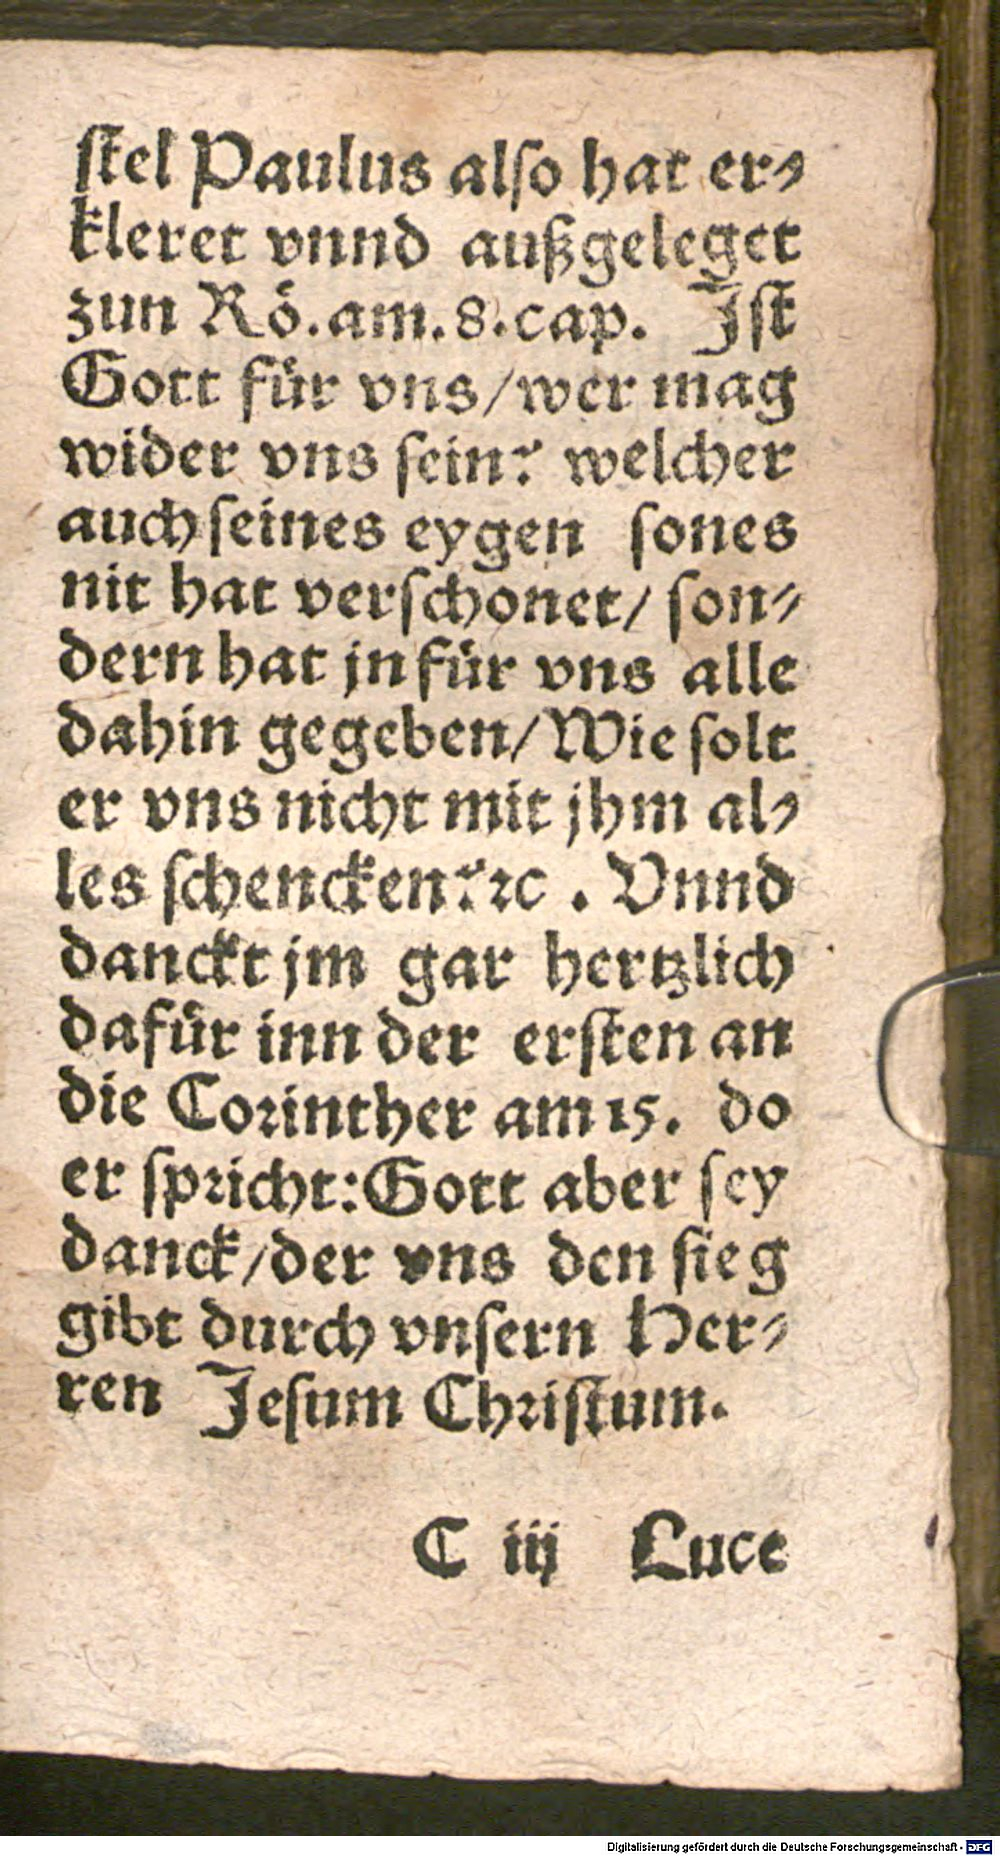 ſtel Paulus alſo hat er⸗
kleret vnnd außgeleget
zun Rö. am. 8. cap. Iſt
Gott für vns / wer mag
wider vns ſein? welcher
auch ſeines eygen ſones
nit hat verſchonet / ſon⸗
dern hat jn für vns alle
dahin gegeben / Wie ſolt
er vns nicht mit jhm al⸗
les ſchencken? ꝛc . Vnnd
danckt jm gar hertzlich
dafür inn der erſten an
die Corinther am 15. do
er ſpricht: Gott aber ſey
danck / der vns den ſieg
gibt durch vnſern Her⸗
ren Jeſum Chriſtum.
C iij Luce
Digitalisierung gefördert durch die Deutsche Forschungsgemeinschaft - DFG